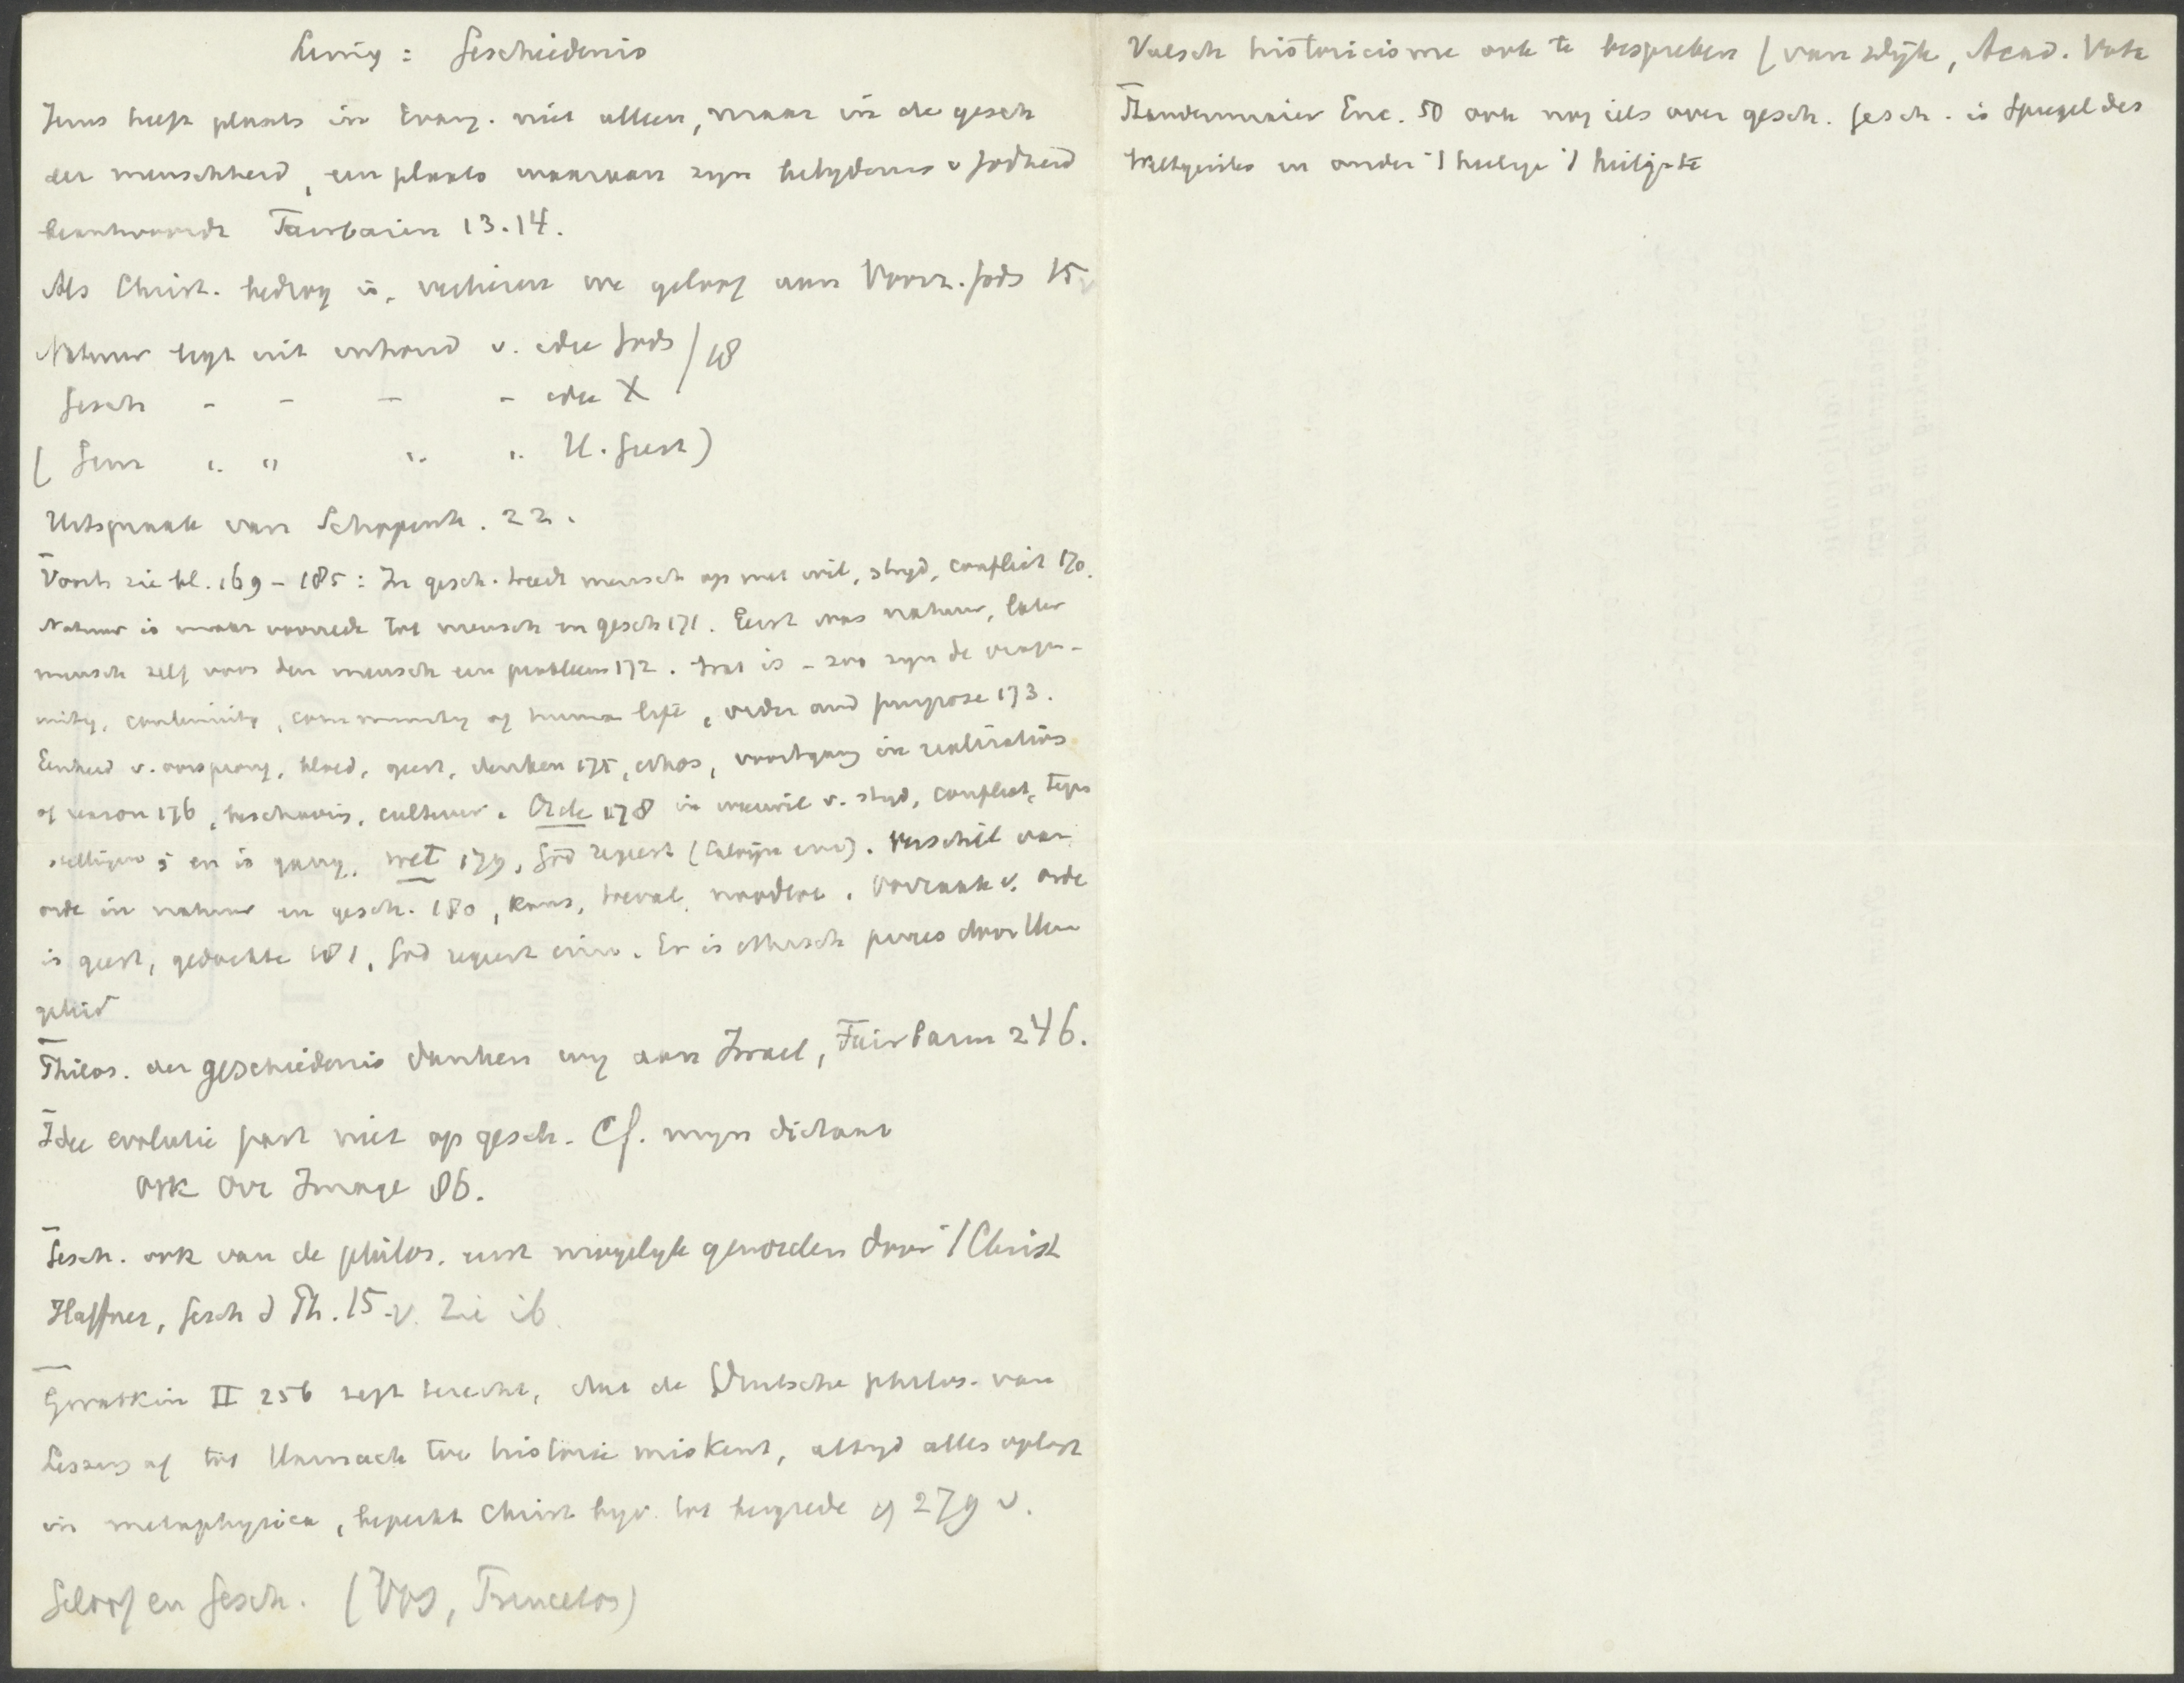 Lezing: Geschiedenis
Jezus heeft plaats in Evang. niet alleen, maar in de gesch
der menschheid, een plaats waaraan zijn belydenis v Godheid
beantwoordt Fairbairn 13.14.
Als Christ. bedrog is, verliezen we geloof aan Voorz. Gods 15v
Natuur legt uit inhoud v. idee Gods / 18
Gesch - - - - idee X
( Gem " " " " H. Geest)
Uitspraak van Schopenh. 22.
Voorts zie bl. 169-185: In gesch. treedt mensch op met wil, stryd, conflict 170.
Natuur is maar voorrede tot mensch en gesch 171. Eerst was natuur, later
mensch zelf voor den mensch een probleem 172. Wat is - zoo zyn de vragen -
unity, continuity, community of human life, order and purpose 173.
Eenheid v. oorsprong, bloed, geest, denken 175, ethos, voortgang in realization
of reason 176, beschaving, cultuur. Orde 178 in weerwil v. stryd, conflict, tegen
stellingen; er is gang, wet 179, God regeert (Calvyn ). Verschil van
orde in natuur en gesch. 180, kans, toeval, noodlot. Oorzaak v. orde
is geest, gedachte 181, God regeert . Er is ethisch proces door Hem
geleid
Philos. der geschiedenis danken wy aan Israel, Fairbairn 246.
Idee evolutie past niet op gesch. Cf. myn dictaat
ook Orr Image 86.
Gesch. ook van de philos. eerst mogelyk geworden door 't Christ
Haffner, Gesch d Ph. 15 v. Zie ib.
Gwatkin II 256 zegt terecht, dat de Duitsche philos. van
Lessing af tot Harnack toe historie miskent, altyd alles oplost
in metaphysica, beperkt Christ bijv. tot bergrede cf 279 v.
Geloof en Gesch. (Vos, Princeton)
Valsch historicisme ook te bespreken (van Dijk, Acad. Vota
Staudenmaier Enc. 50 ook nog iets over gesch. Gesch. is Spiegel des
Weltgeistes en onder 't heilige 't heiligste